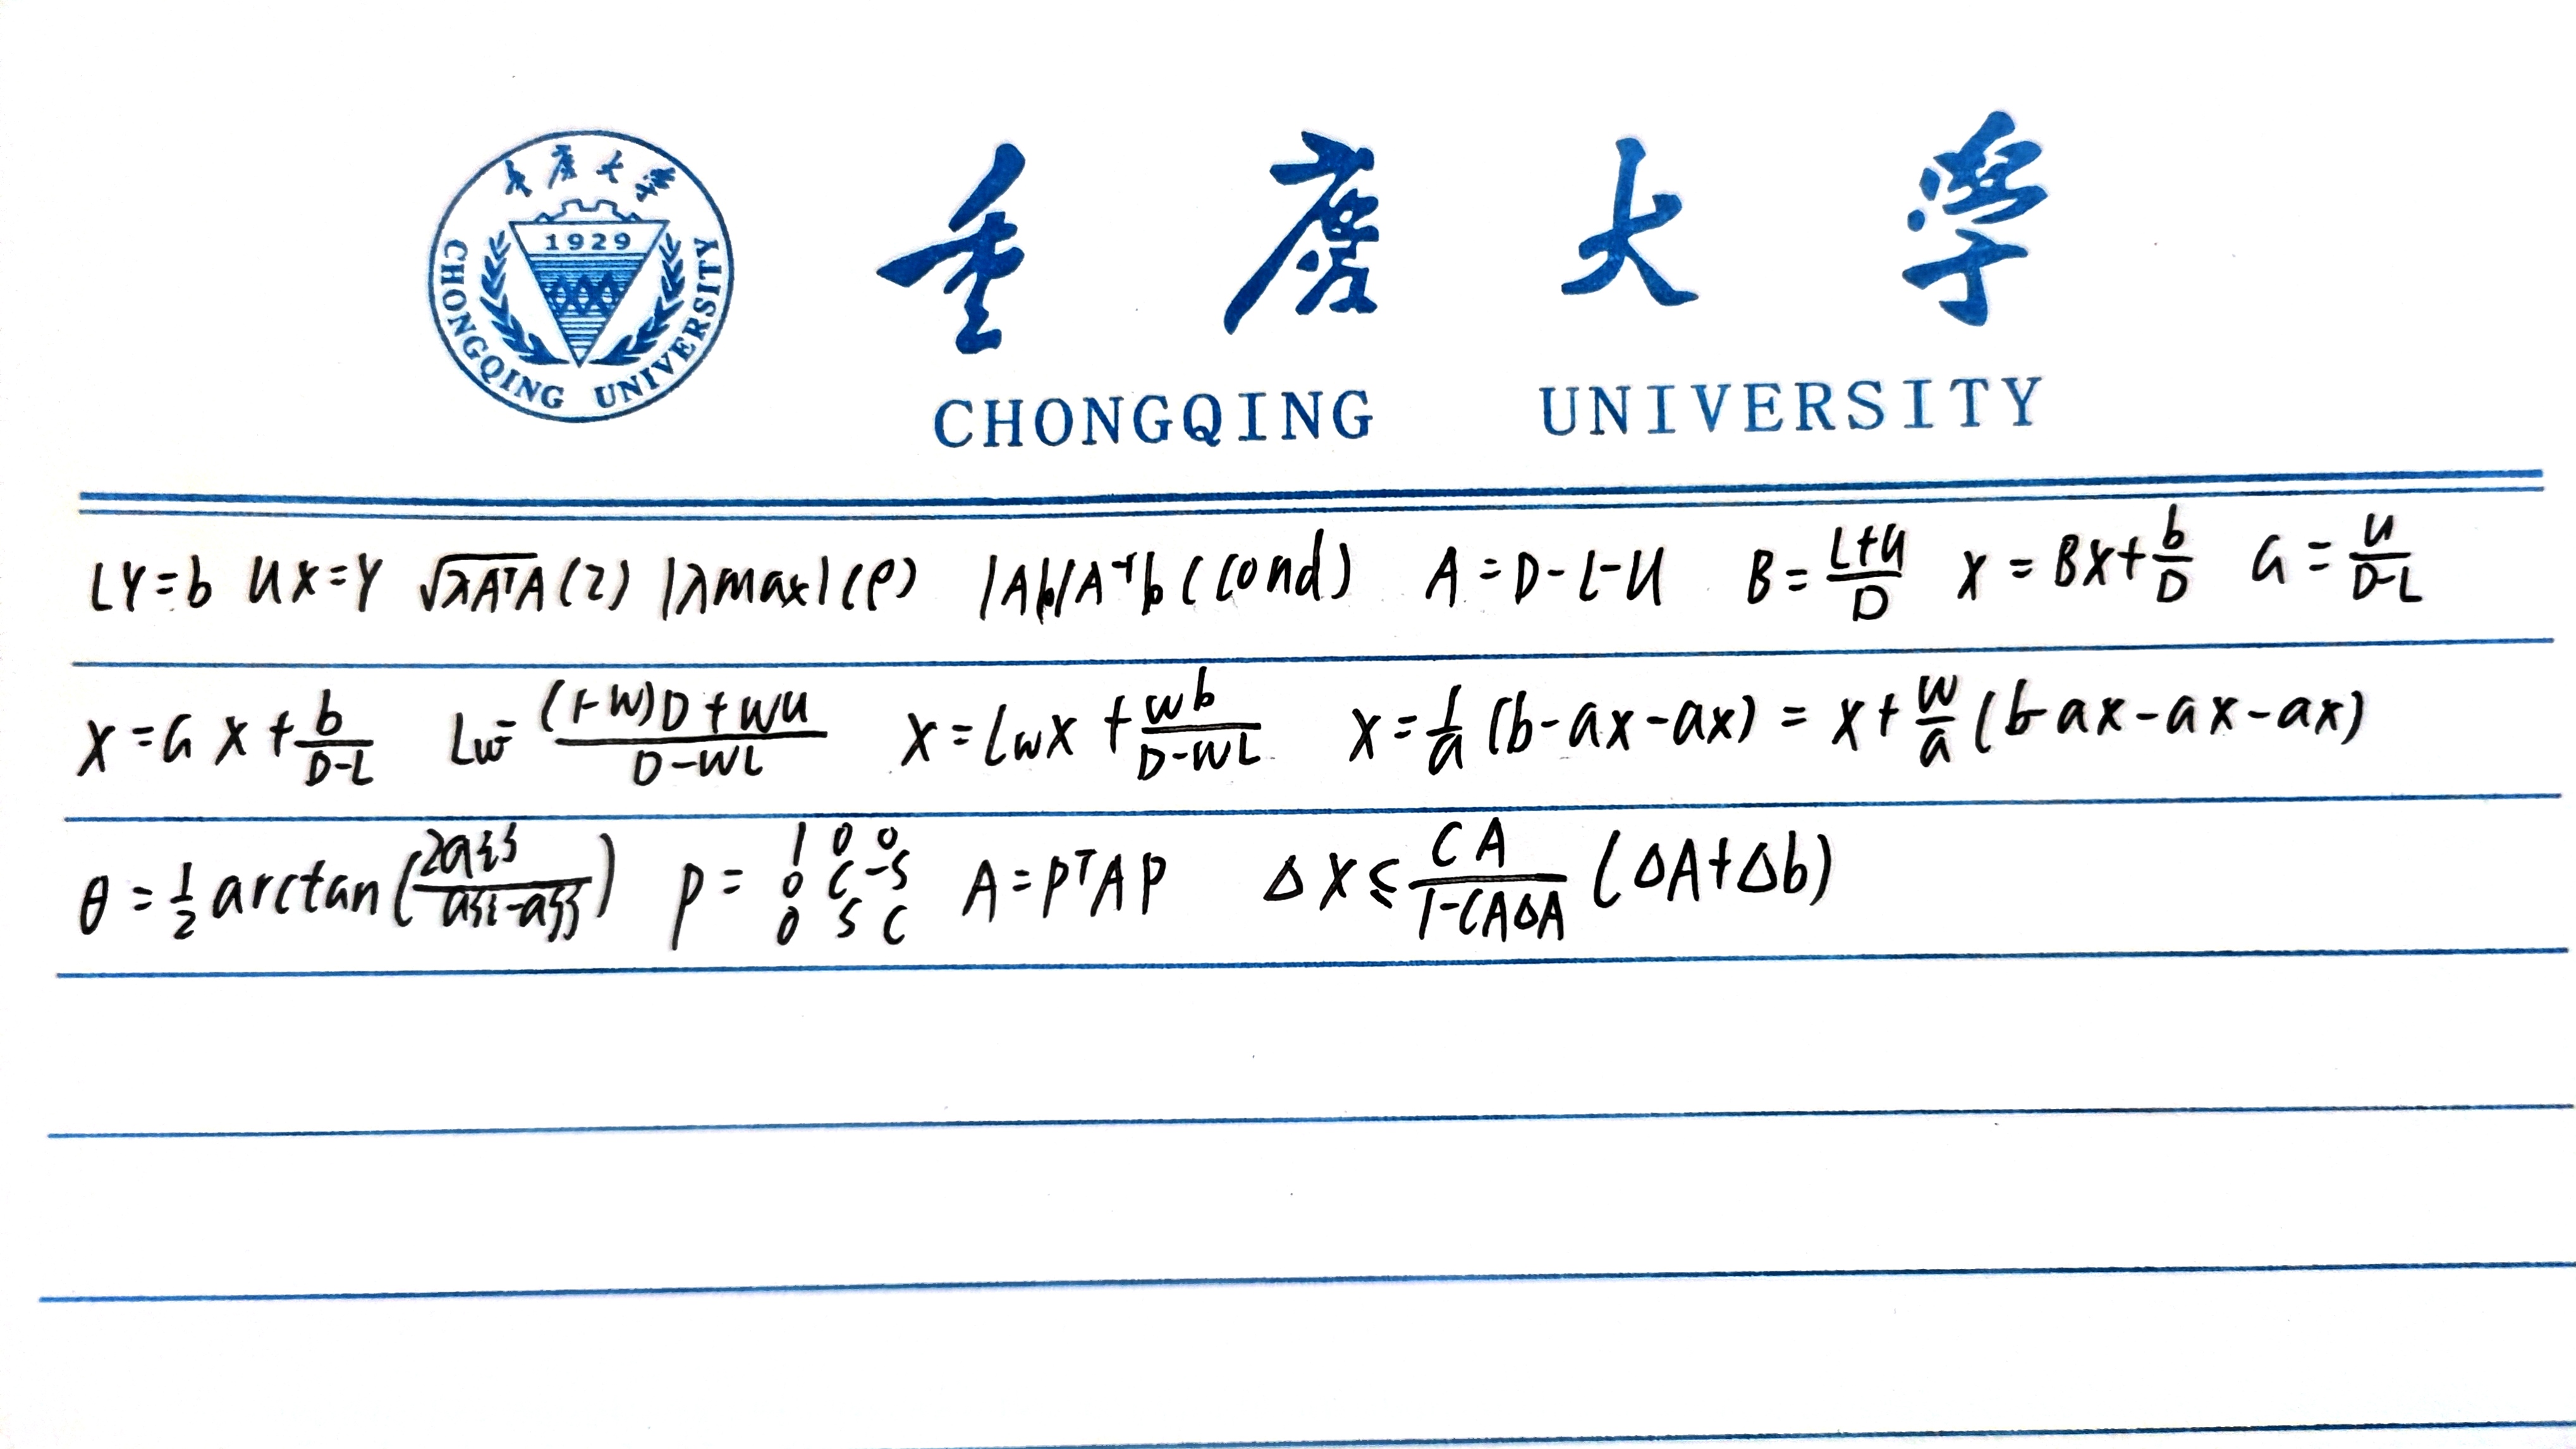 重庆大学
1929
CHONGQING UNIVERSITY
重庆大学
CHONGQING UNIVERSITY
LY=b UX=Y √λAᵀA (2) |λmax| (ρ) |Ab|A⁻¹b (cond) A=D-L-U B=(L+U)/D X=BX+b/D G=U/(D-L)
X=GX+b/(D-L) Lw=((1-W)D+WU)/(D-WL) X=LwX+wb/(D-WL) X=1/a(b-ax-ax)=X+w/a(b-ax-ax-ax)
θ=1/2 arctan( ) P= 1 0 0 0 C -S 0 S C A=PᵀAP ΔX≤CA/(1-CAΔA)(ΔA+Δb)